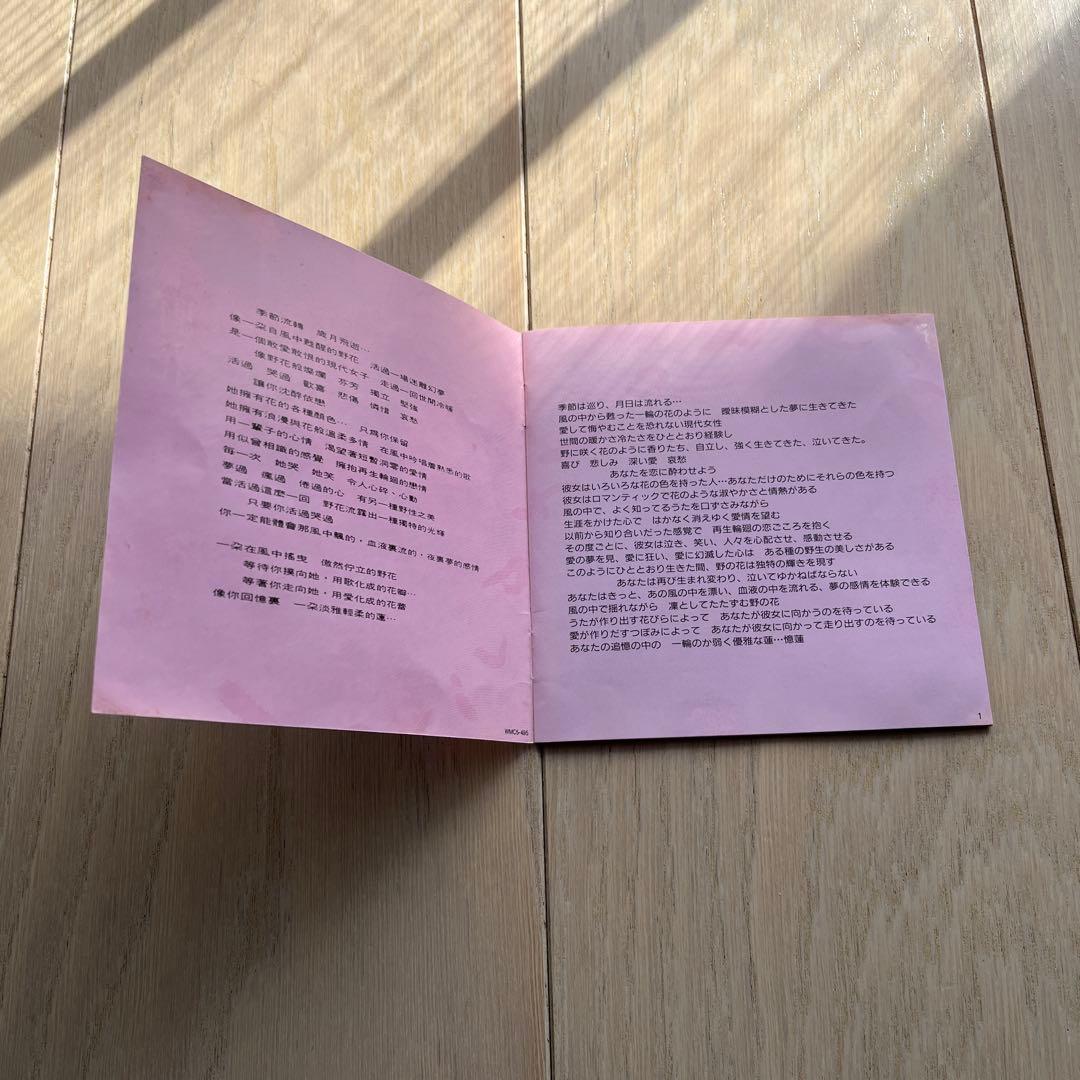 季節流轉　歲月飛逝…
像一朵自風中甦醒的野花　活過一場迷離幻夢
是一個敢愛敢恨的現代女子　走過一回世間冷暖
像野花般燦爛　芬芳　獨立　堅強
活過　哭過　歡喜　悲傷　憐惜　哀愁
讓你沈醉依戀
她擁有花的各種顏色…　只為你保留
她擁有浪漫與花般溫柔多情　在風中吟唱層熟悉的歌
用一輩子的心情　渴望著短暫凋零的愛情
用似曾相識的感覺　擁抱再生輪迴的戀情
每一次　她哭　她笑　令人心碎、心動
夢過　瘋過　倦過的心　有另一種野性之美
當活過這麼一回　野花流露出一種獨特的光輝
只要你活過哭過
你一定能體會那風中飄的，血液裏流的，夜裏夢的感情
一朵在風中搖曳　傲然佇立的野花
等待你撲向她，用歌化成的花瓣…
等著你走向她，用愛化成的花蕾
像你回憶裏　一朵淡雅輕柔的蓮…
WMC5-495
季節は巡り、月日は流れる…
風の中から甦った一輪の花のように　曖昧模糊とした夢に生きてきた
愛して悔やむことを恐れない現代女性
世間の暖かさ冷たさをひととおり経験し
野に咲く花のように香りたち、自立し、強く生きてきた、泣いてきた。
喜び　悲しみ　深い愛　哀愁
あなたを恋に酔わせよう
彼女はいろいろな花の色を持った人…あなただけのためにそれらの色を持つ
彼女はロマンティックで花のような淑やかさと情熱がある
風の中で、よく知ってるうたを口ずさみながら
生涯をかけた心で　はかなく消えゆく愛情を望む
以前から知り合いだった感覚で　再生輪廻の恋ごころを抱く
その度ごとに、彼女は泣き、笑い、人々を心配させ、感動させる
愛の夢を見、愛に狂い、愛に幻滅した心は　ある種の野生の美しさがある
このようにひととおり生きた間、野の花は独特の輝きを現す
あなたは再び生まれ変わり、泣いてゆかねばならない
あなたはきっと、あの風の中を漂い、血液の中を流れる、夢の感情を体験できる
風の中で揺れながら　凛としてたたずむ野の花
うたが作り出す花びらによって　あなたが彼女に向かうのを待っている
愛が作りだすつぼみによって　あなたが彼女に向かって走り出すのを待っている
あなたの追憶の中の　一輪のか弱く優雅な蓮…憶蓮
1